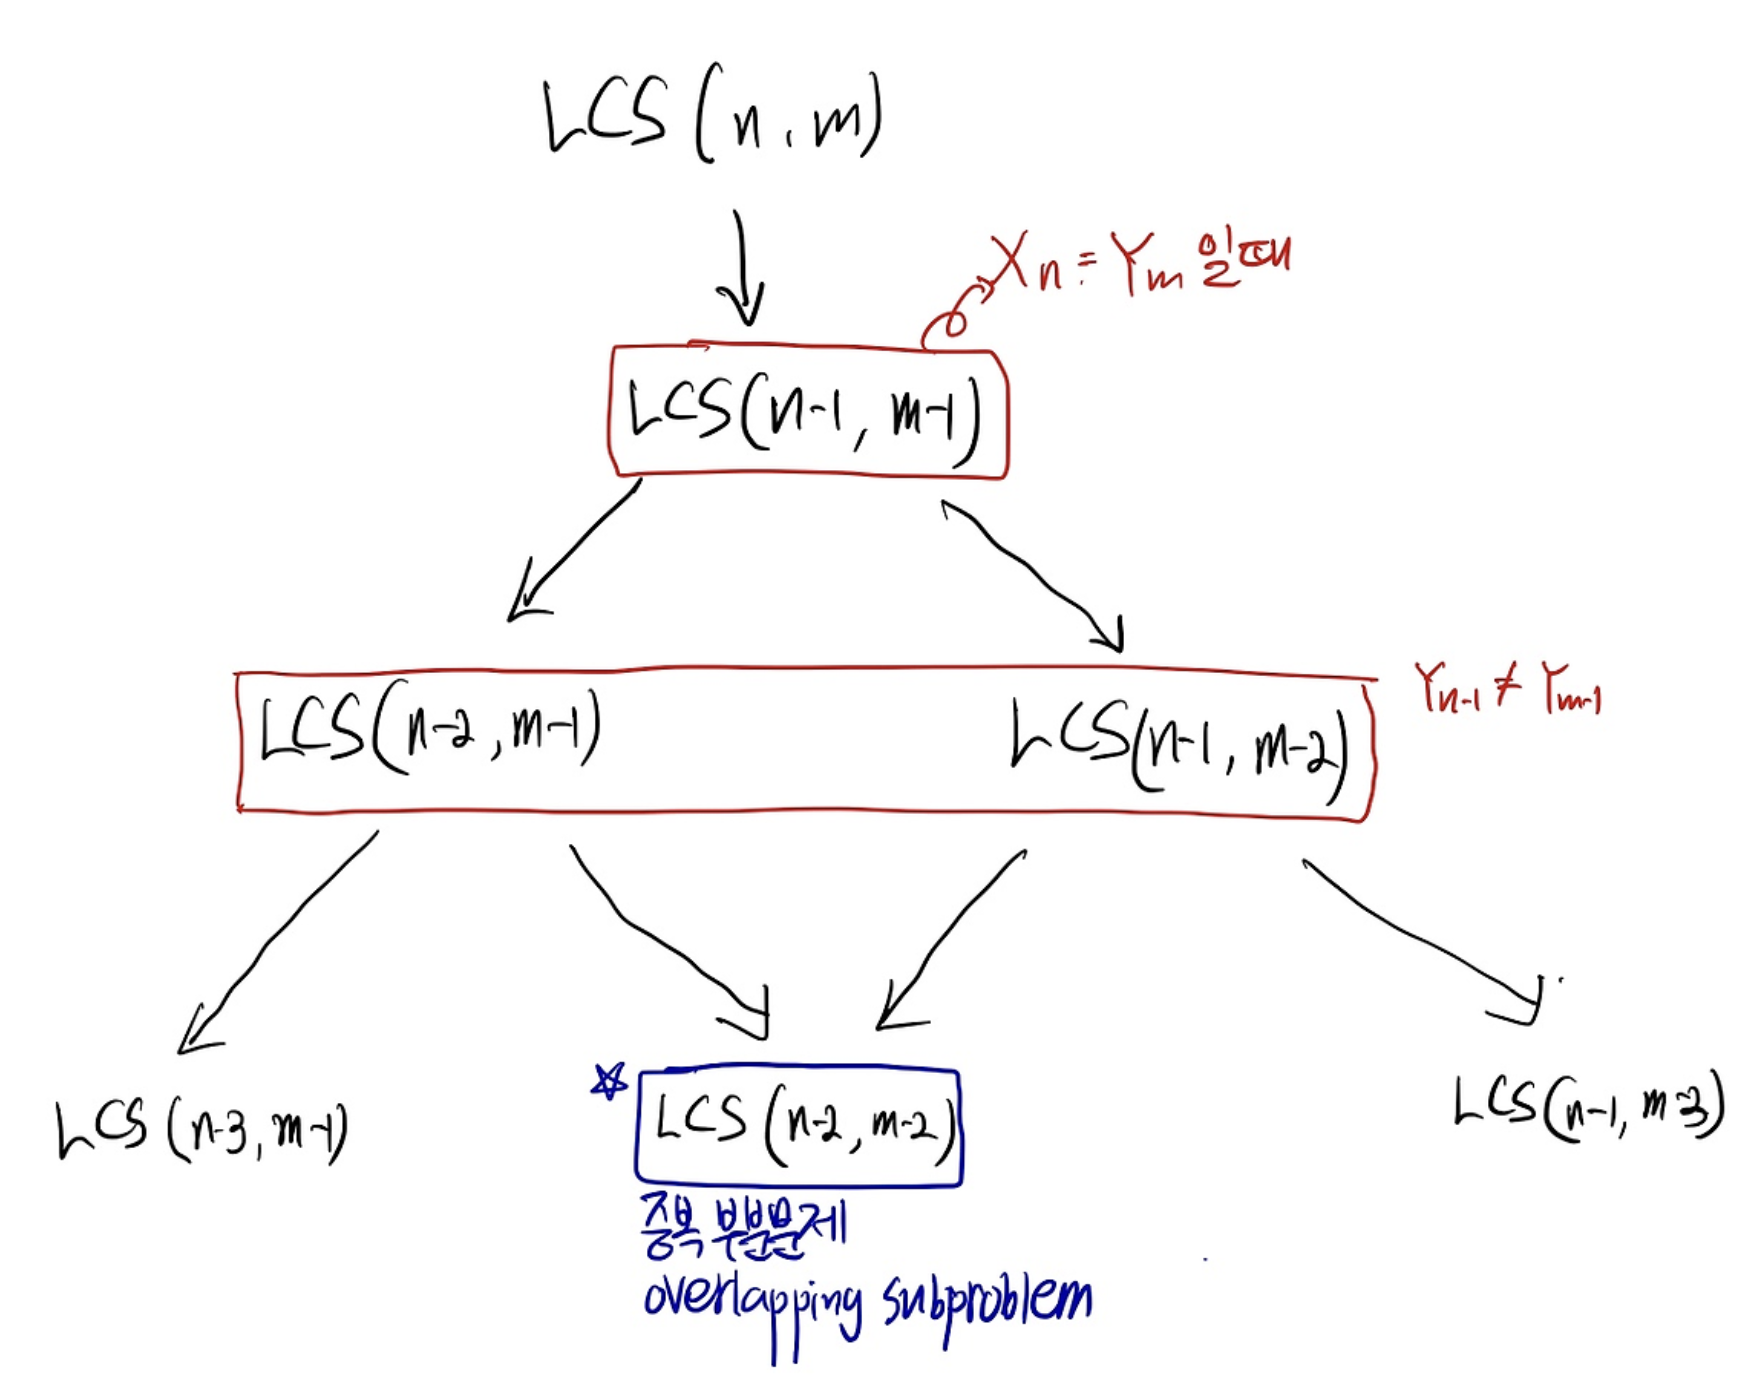 LCS (n, m)
Xn = Ym 일때
LCS(n-1, m-1)
LCS(n-2, m-1)
LCS(n-1, m-2)
Yn-1 ≠ Ym-1
LCS (n-3, m-1)
LCS (n-2, m-2)
LCS(n-1, m-3)
중복 부분문제
overlapping subproblem